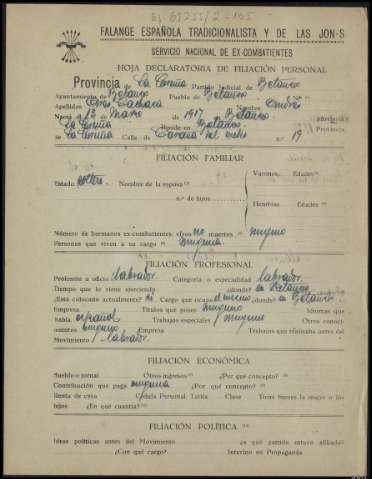 FALANGE ESPAÑOLA TRADICIONALISTA Y DE LAS JON-S
SERVICIO NACIONAL DE EX-COMBATIENTES
HOJA DECLARATORIA DE FILIACIÓN PERSONAL
Provincia de La Coruña Partido Judicial de Betanzos
Ayuntamiento de Betanzos Pueblo de Betanzos
Apellidos Nombre Andrés
Nació a 13 de Marzo de 1917 Betanzos provincia
La Coruña Reside en Betanzos Provincia
de La Coruña Calle de n.º 19
FILIACIÓN FAMILIAR
Estado soltero Nombre de la esposa Varones, Edades
n.º de hijos
Hembras, Edades
Número de hermanos ex-combatientes no muertos ninguno
Personas que viven a su cargo ninguna
FILIACIÓN PROFESIONAL
Profesión u oficio labrador Categoría o especialidad labrador
Tiempo que lo viene ejerciendo ¿dónde? en Betanzos
¿Está colocado actualmente? si Cargo que ocupa el mismo ¿dónde? en Betanzos
Empresa Títulos que posee ninguno Idiomas que
habla español Trabajos especiales ninguno Otros conoci-
mientos ninguno Empresa Trabajos que realizaba antes del
Movimiento labrador.
FILIACIÓN ECONÓMICA
Sueldo o jornal Otros ingresos ¿Por qué concepto?
Contribución que paga ninguna ¿Por qué concepto?
Renta de casa Cédula Personal Tarifa Clase Tiene bienes la mujer o los
hijos ¿En qué cuantía?
FILIACIÓN POLÍTICA
Ideas políticas antes del Movimiento ¿a qué partido estuvo afiliado?
¿Con qué cargo? Intervino en Propaganda